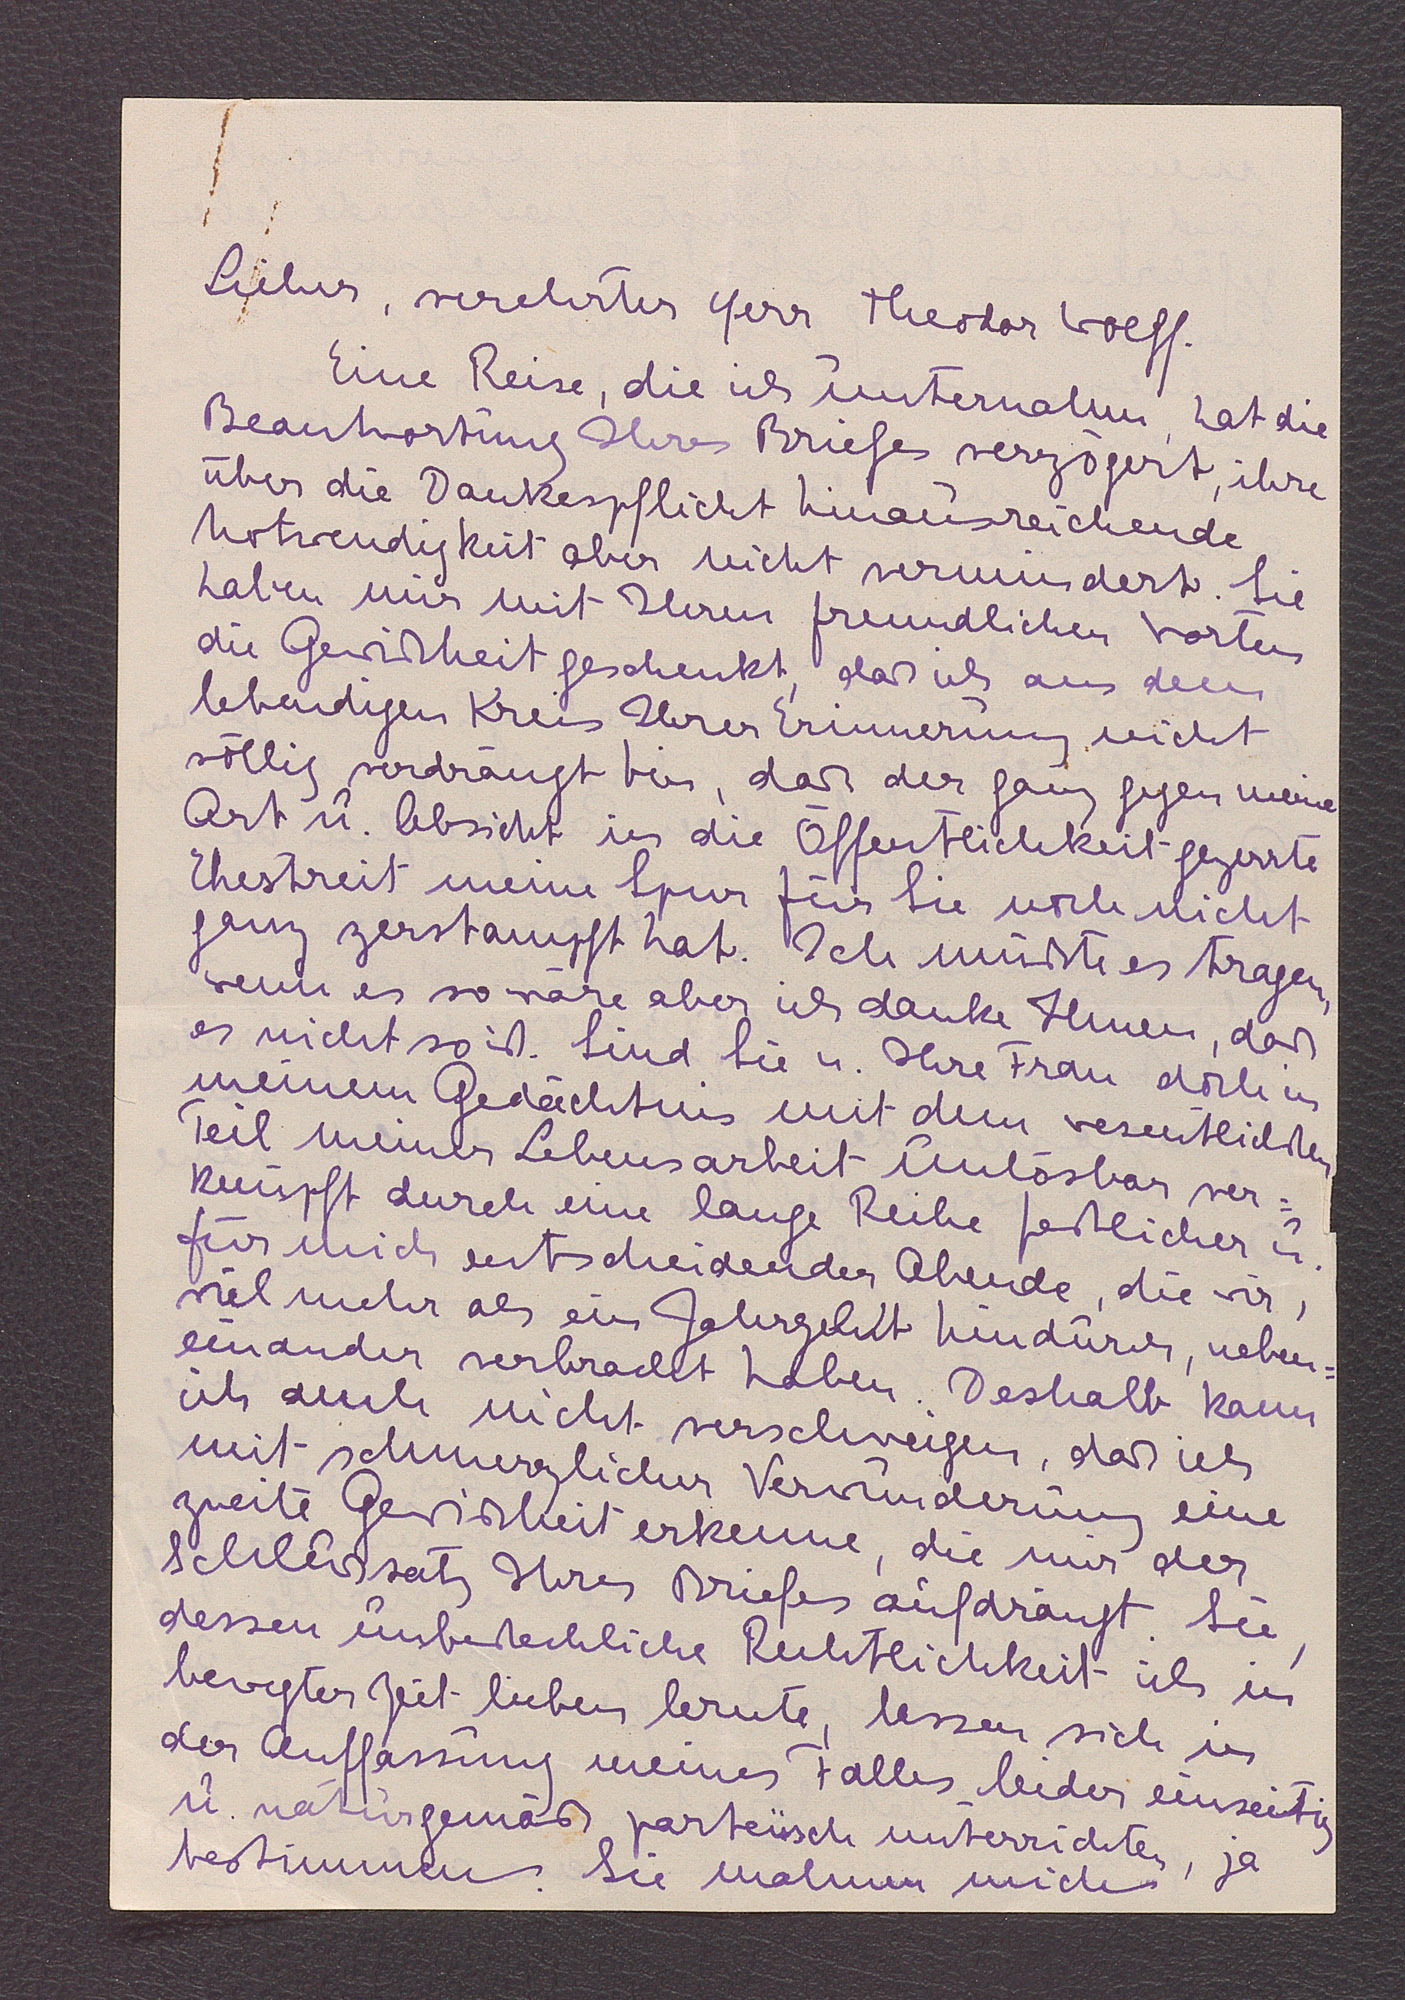 Lieber, verehrter Herr Theodor Wolff.
Eine Reise, die ich unternahm, hat die
Beantwortung Ihres Briefes verzögert, ihre
über die Dankespflicht hinausreichende
Notwendigkeit aber nicht vermindert. Sie
haben mir mit Ihren freundlichen Worten
die Gewißheit geschenkt, daß ich aus dem
lebendigen Kreis Ihrer Erinnerung nicht
völlig verdrängt bin, daß der ganz gegen meine
Art u. Absicht in die Öffentlichkeit gezerrte
Ehestreit meine Spur für Sie noch nicht
ganz zerstampft hat. Ich müßte es tragen,
wenn es so wäre aber ich danke Ihnen, daß
es nicht so ist. Sind Sie u. Ihre Frau doch in
meinem Gedächtnis mit dem wesentlichsten
Teil meiner Lebensarbeit unlösbar ver=
knüpft durch eine lange Reihe festlicher u.
für mich entscheidender Abende, die wir,
viel mehr als ein Jahrzehnt hindurch, neben=
einander verbracht haben. Deshalb kann
ich auch nicht verschweigen, daß ich
mit schmerzlicher Verwunderung eine
zweite Gewißheit erkenne, die mir der
Schlußsatz Ihres Briefes aufdrängt. Sie,
dessen unbestechliche Rechtlichkeit ich in
bewegter Zeit lieben lernte, lassen sich in
der Auffassung meines Falles leider einseitig
u. naturgemäß parteiisch unterrichten, ja
bestimmen. Sie mahnen mich